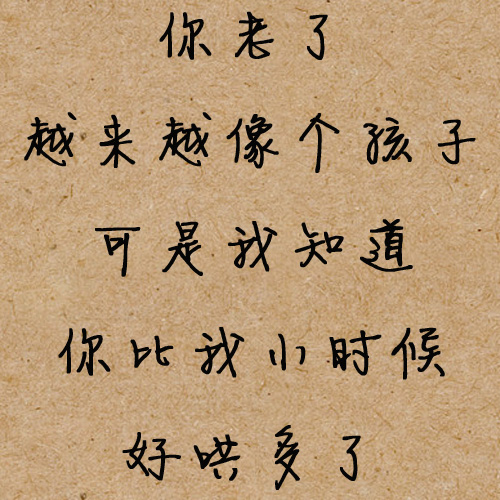 你老了
越来越像个孩子
可是我知道
你比我小时候
好哄多了